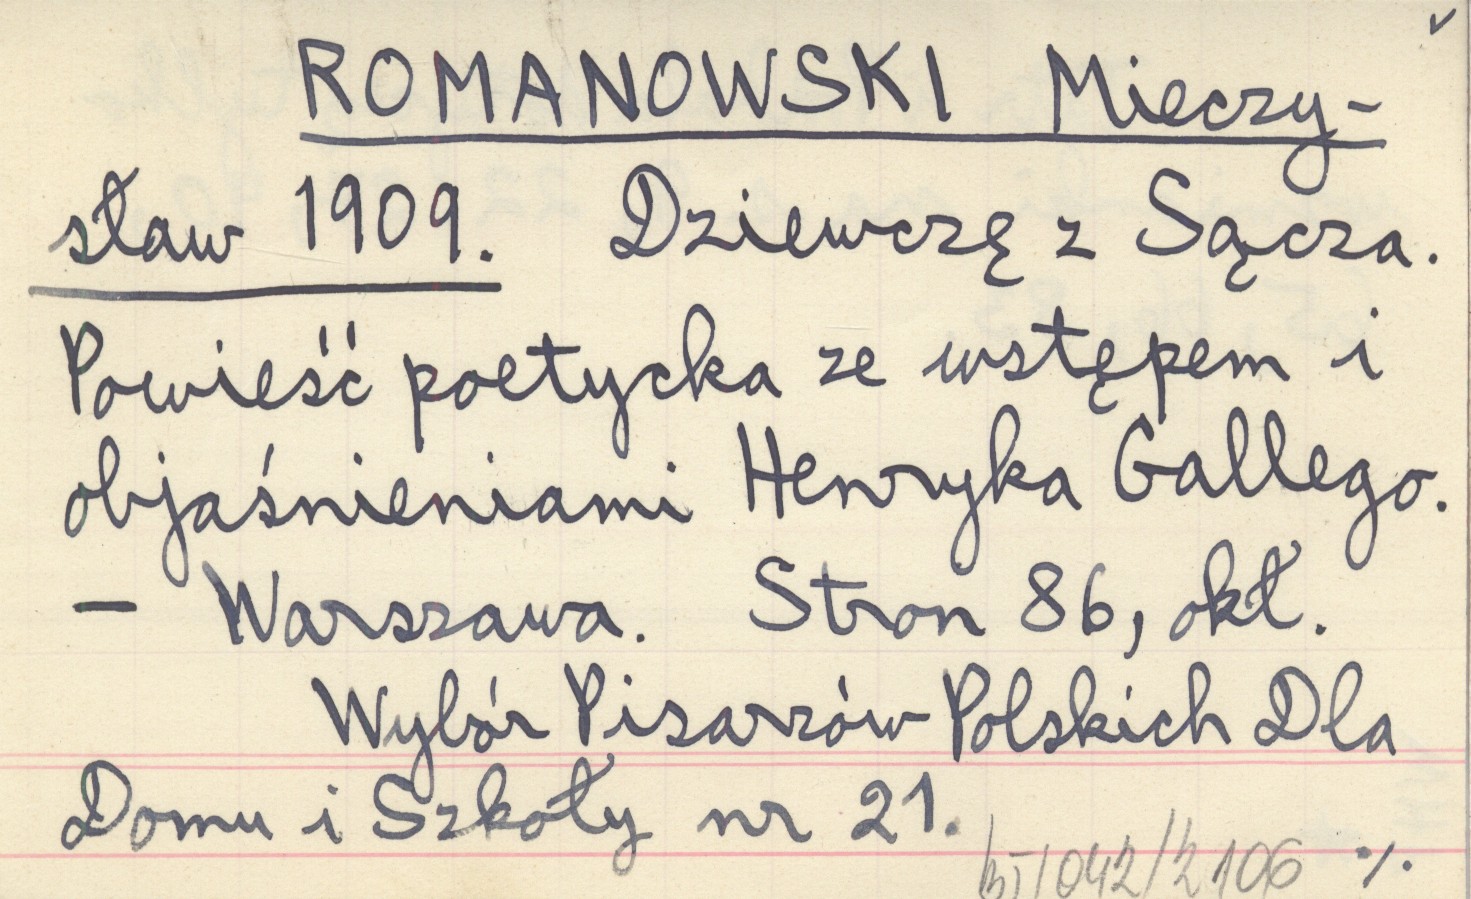 ROMANOWSKI Mieczy-
sław 1909. Dziewczę z Sącza.
Powieść poetycka ze wstępem i
objaśnieniami Henryka Gallego.
— Warszawa. Stron 86, okł.
Wybór Pisarzów Polskich Dla
Domu i Szkoły nr 21.
/042/2106 ./.